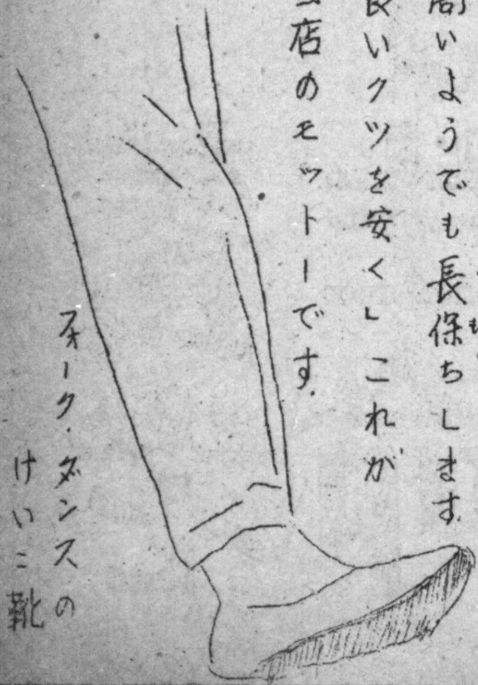 高いようでも長保ちします。
良いクツを安く」これが
店のモットーです。
フォーク・ダンスの
けいこ靴